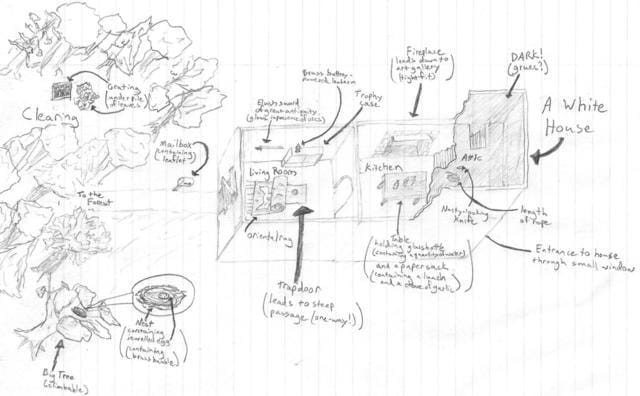 Grating
(under pile
of leaves)
Clearing
Mailbox
(containing
leaflet)
To the
Forest
Nest
containing
jewelled egg
(containing
brass bauble)
Big Tree
(climbable)
Elvish sword
of great antiquity
(glows in presence of orcs)
Brass battery-
powered lantern
Trophy
case
Living Room
oriental rug
Trapdoor
(leads to steep
passage (one-way!)
Fireplace
(leads down to
art gallery
(tight fit)
Kitchen
Table
holding glass bottle
(containing a quantity of water)
and a paper sack
(containing a lunch
and a clove of garlic)
DARK!
(grues?)
Attic
Nasty-looking
Knife
length
of rope
A White
House
Entrance to house
through small window